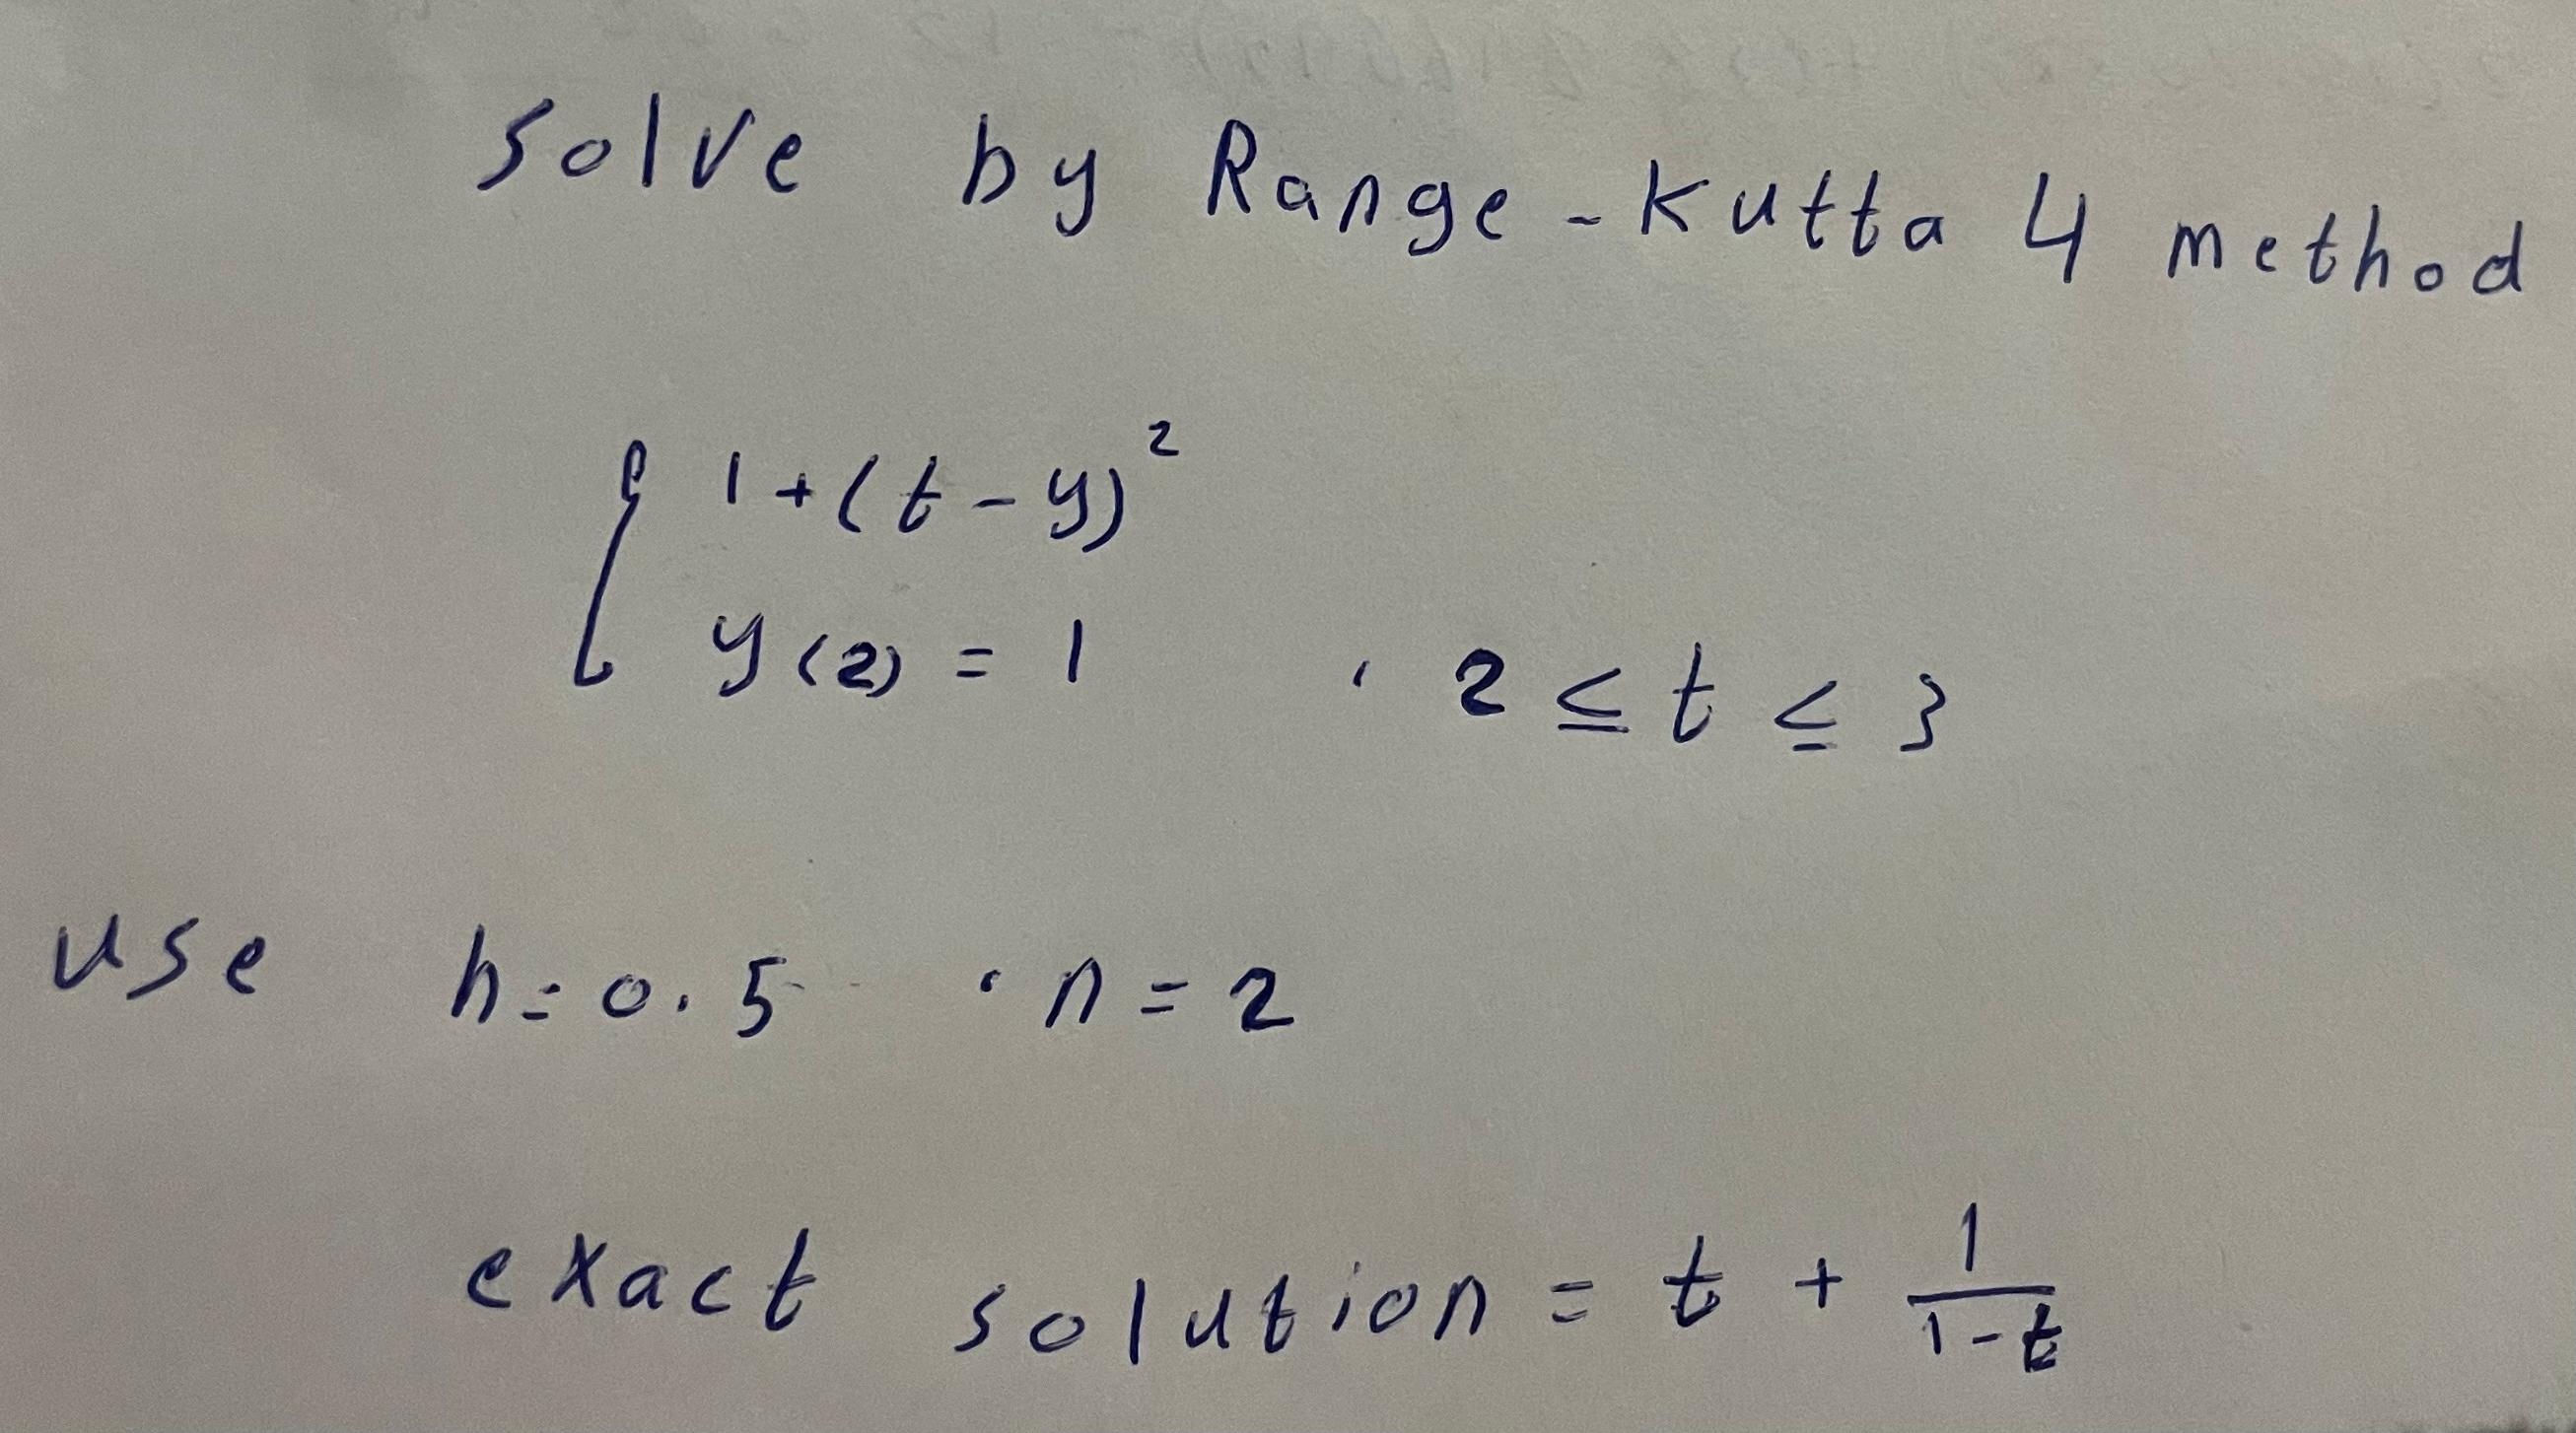 solve by Range-Kutta 4 method
{ 1+(t-y)²
y(2) = 1 , 2 ≤ t ≤ 3
use h=0.5 , n=2
exact solution = t + 1/(1-t)